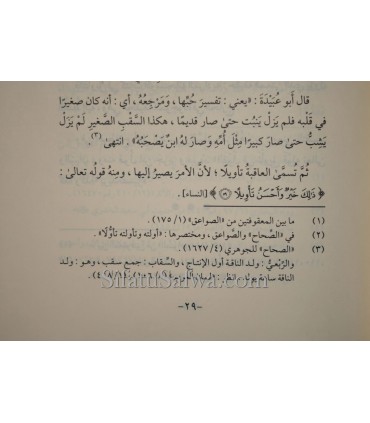 قال أبو عُبَيْدَةَ: «يعني: تفسيرَ حُبِّها، وَمَرْجِعُهُ، أي: أنه كان صغيرًا
في قَلْبه فلم يَزَلْ يَنبُت حتىٰ صار قديمًا، هكذا السَّقْب الصَّغير لَمْ يَزَلْ
يَشِبُّ حتىٰ صارَ كبيرًا مِثْلَ أُمِّهِ وصارَ لهُ ابنٌ يَصْحَبُهُ». انتهىٰ(٣).
ثُمَّ تُسمَّىٰ العاقبةُ تأويلًا؛ لأنَّ الأمرَ يصيرُ إليها، ومِنهُ قولُه تعالىٰ:
﴿ذَٰلِكَ خَيْرٌ وَأَحْسَنُ تَأْوِيلًا ۝٥٩﴾ [النساء].
(١) ما بين المعقوفتين من «الصواعق» (١/ ١٧٥).
(٢) في «الصِّحاح» والصَّواعق، ومختصرها: «أولته وتأولته تأوُّلًا».
(٣) «الصحاح» للجوهري (٤/ ١٦٢٧).
والرِّبْعيُّ: ولـد الناقـة أول الإنتـاج، والسِّقاب: جمـع سقب، وهـو: ولـد
الناقة سـاعة يولد. انظر: «لسان العرب»
-٢٩-
SilatuSalwa.com